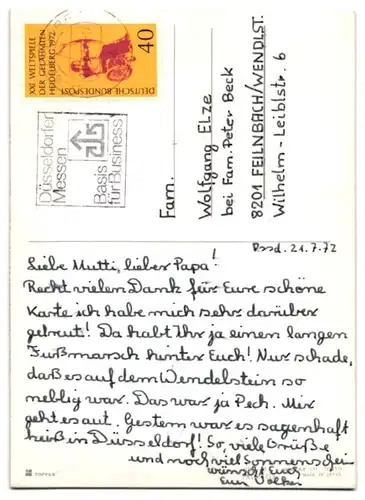 XXI. WELTSPIELE
DER GELÄHMTEN
HEIDELBERG 1972
DEUTSCHE BUNDESPOST
40
Düsseldorfer
Messen
Basis
für Business
Fam.
Wolfgang Elze
bei Fam. Peter Beck
8201 FEILNBACH/WENDLST.
Wilhelm-Leiblstr. 6
Dssd. 21.7.72
Liebe Mutti, lieber Papa!
Recht vielen Dank für Eure schöne
Karte ich habe mich sehr darüber
gefreut! Da habt Ihr ja einen langen
Fußmarsch hinter Euch! Nur schade,
daß es auf dem Wendelstein so
neblig war. Das war ja Pech. Mir
geht es gut. Gestern war es sagenhaft
heiß in Düsseldorf! So, viele Grüße
und noch viel Sonnenschein
wünscht Euch
Euer Volker
TOPPAN